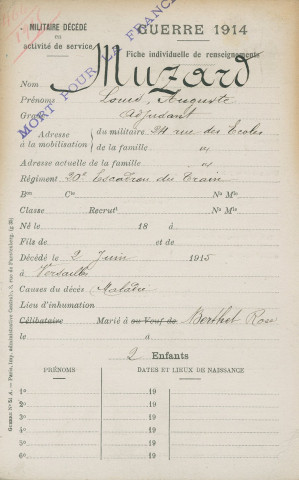 MILITAIRE DÉCÉDÉ
en
activité de service
GUERRE 1914
MORT POUR LA FRANCE
Fiche individuelle de renseignements
Nom Muzard
Prénoms Louis, Auguste
Grade Adjudant
Adresse à la mobilisation du militaire 24 rue des Ecoles
de la famille id
Adresse actuelle de la famille id
Régiment 20e Escadron du Train
Bon Cie No Mle
Classe Recrut No Mle
Né le 18 à
Fils de et de
Décédé le 2 Juin 1915
à Versailles
Causes du décès Maladie
Lieu d'inhumation
Célibataire Marié à ou Veuf de Berthet
le à
2 Enfants
PRÉNOMS DATES ET LIEUX DE NAISSANCE
1o 19
2o 19
3o 19
4o 19
5o 19
6o 19